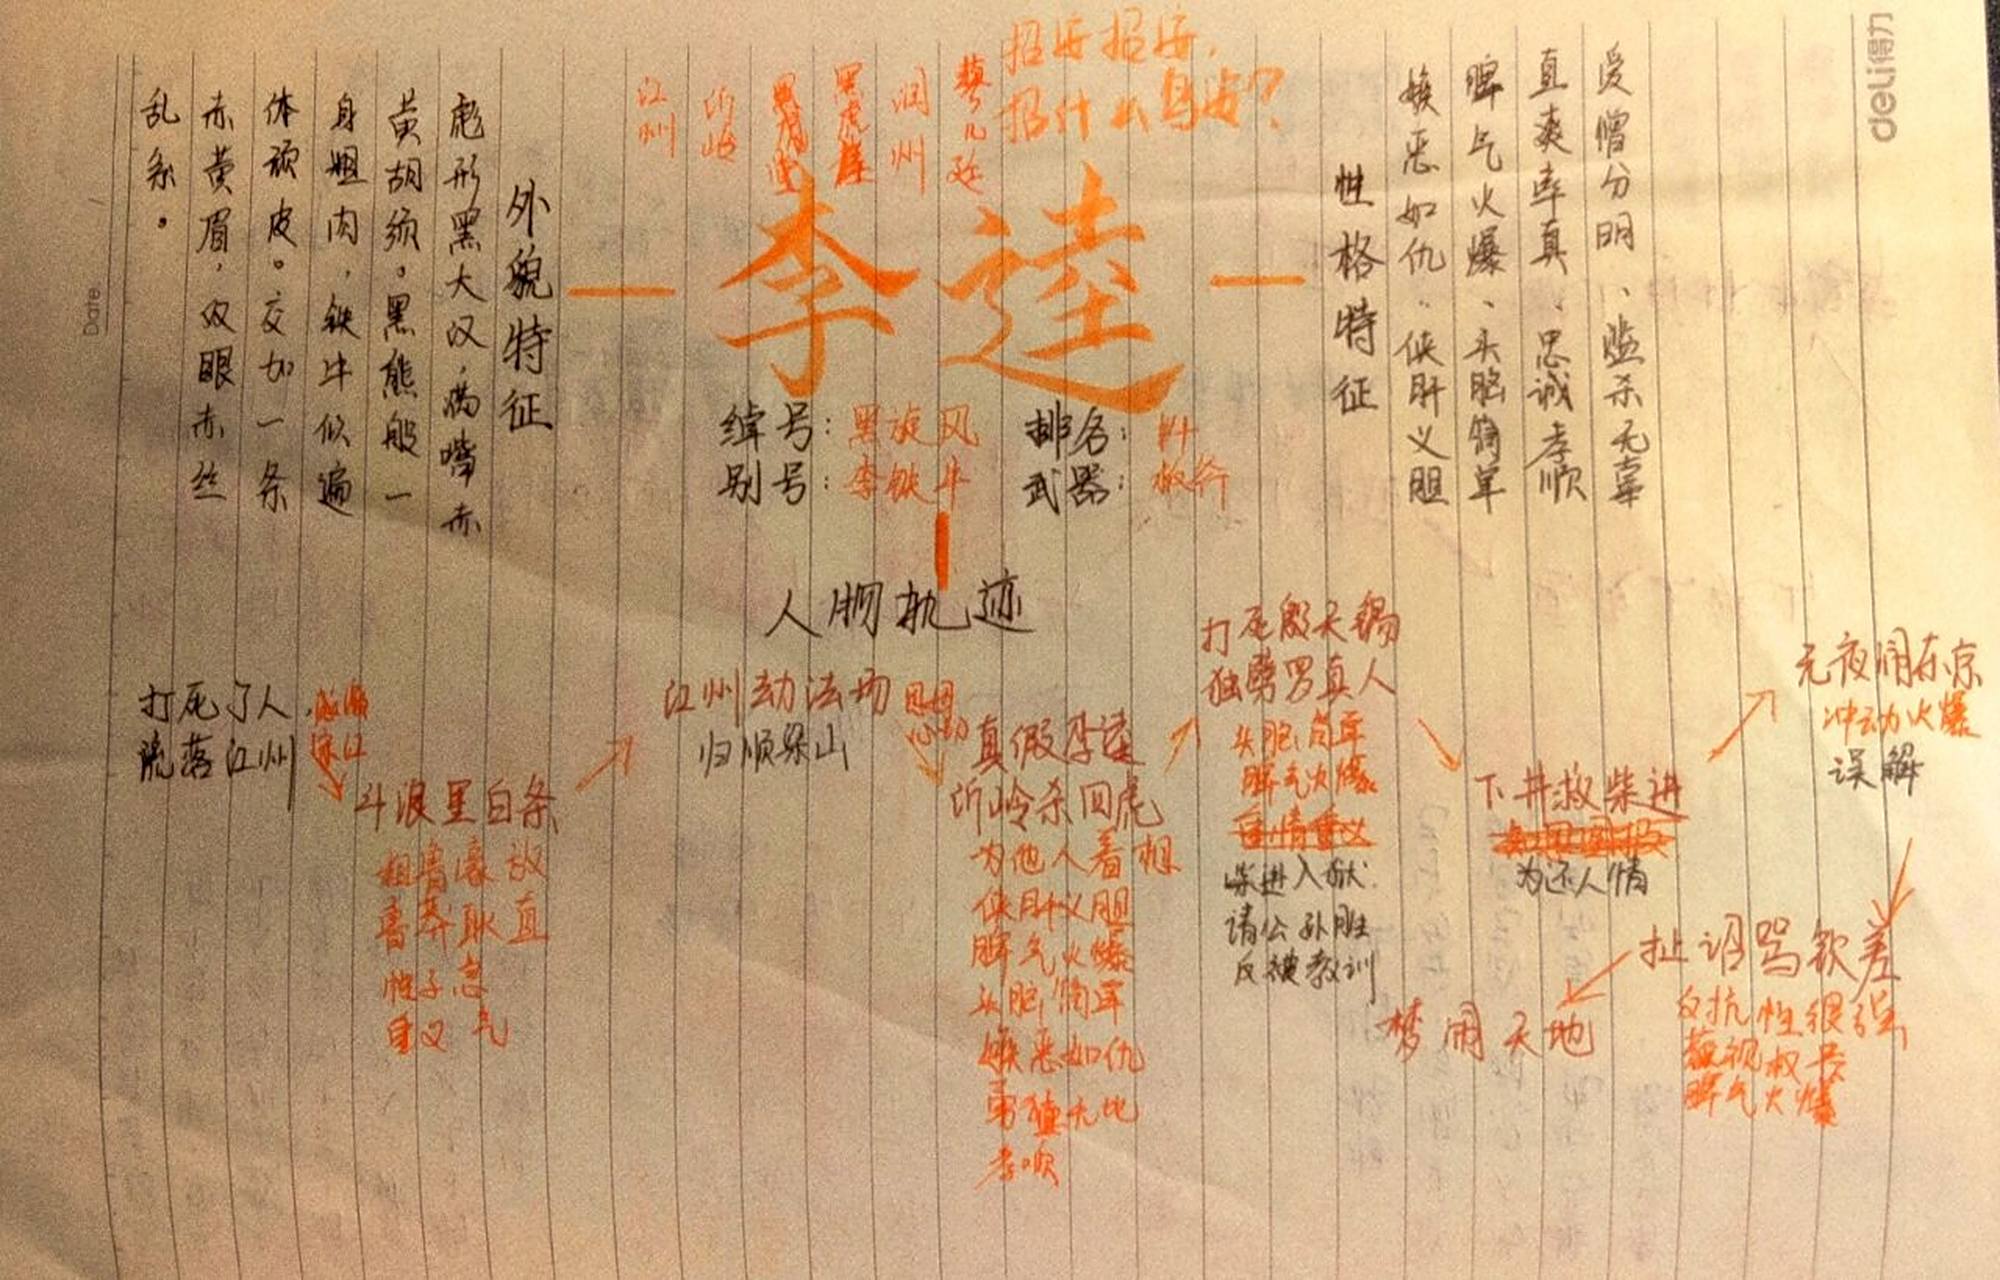 deli得力
Date
招安招安，
招什么鸟安？
江州
沂岭
润州
李逵
绰号：黑旋风
别号：李铁牛
排名：廿
武器：板斧
外貌特征
彪形黑大汉，满嘴赤
黄胡须。黑熊般一
身粗肉，铁牛似遍
体顽皮。交加一条
赤黄眉，双眼赤丝
乱系。
性格特征
嫉恶如仇、侠肝义胆
脾气火爆、头脑简单
直爽率真、忠诚孝顺
爱憎分明、滥杀无辜
人物轨迹
打死了人，
流落江州
宋江
斗浪里白条
粗鲁豪放
鲁莽耿直
性子急
重义气
江州劫法场
归顺梁山
思母
心切
真假李逵
沂岭杀四虎
为他人着想
侠肝义胆
脾气火爆
头脑简单
嫉恶如仇
勇猛无比
孝顺
打死殷天锡
独劈罗真人
头脑简单
脾气火爆
重情重义
柴进入狱
请公孙胜
反被教训
下井救柴进
为还人情
元夜闹东京
冲动火爆
误解
扯诏骂钦差
反抗性很强
藐视权贵
脾气火爆
梦闹天地